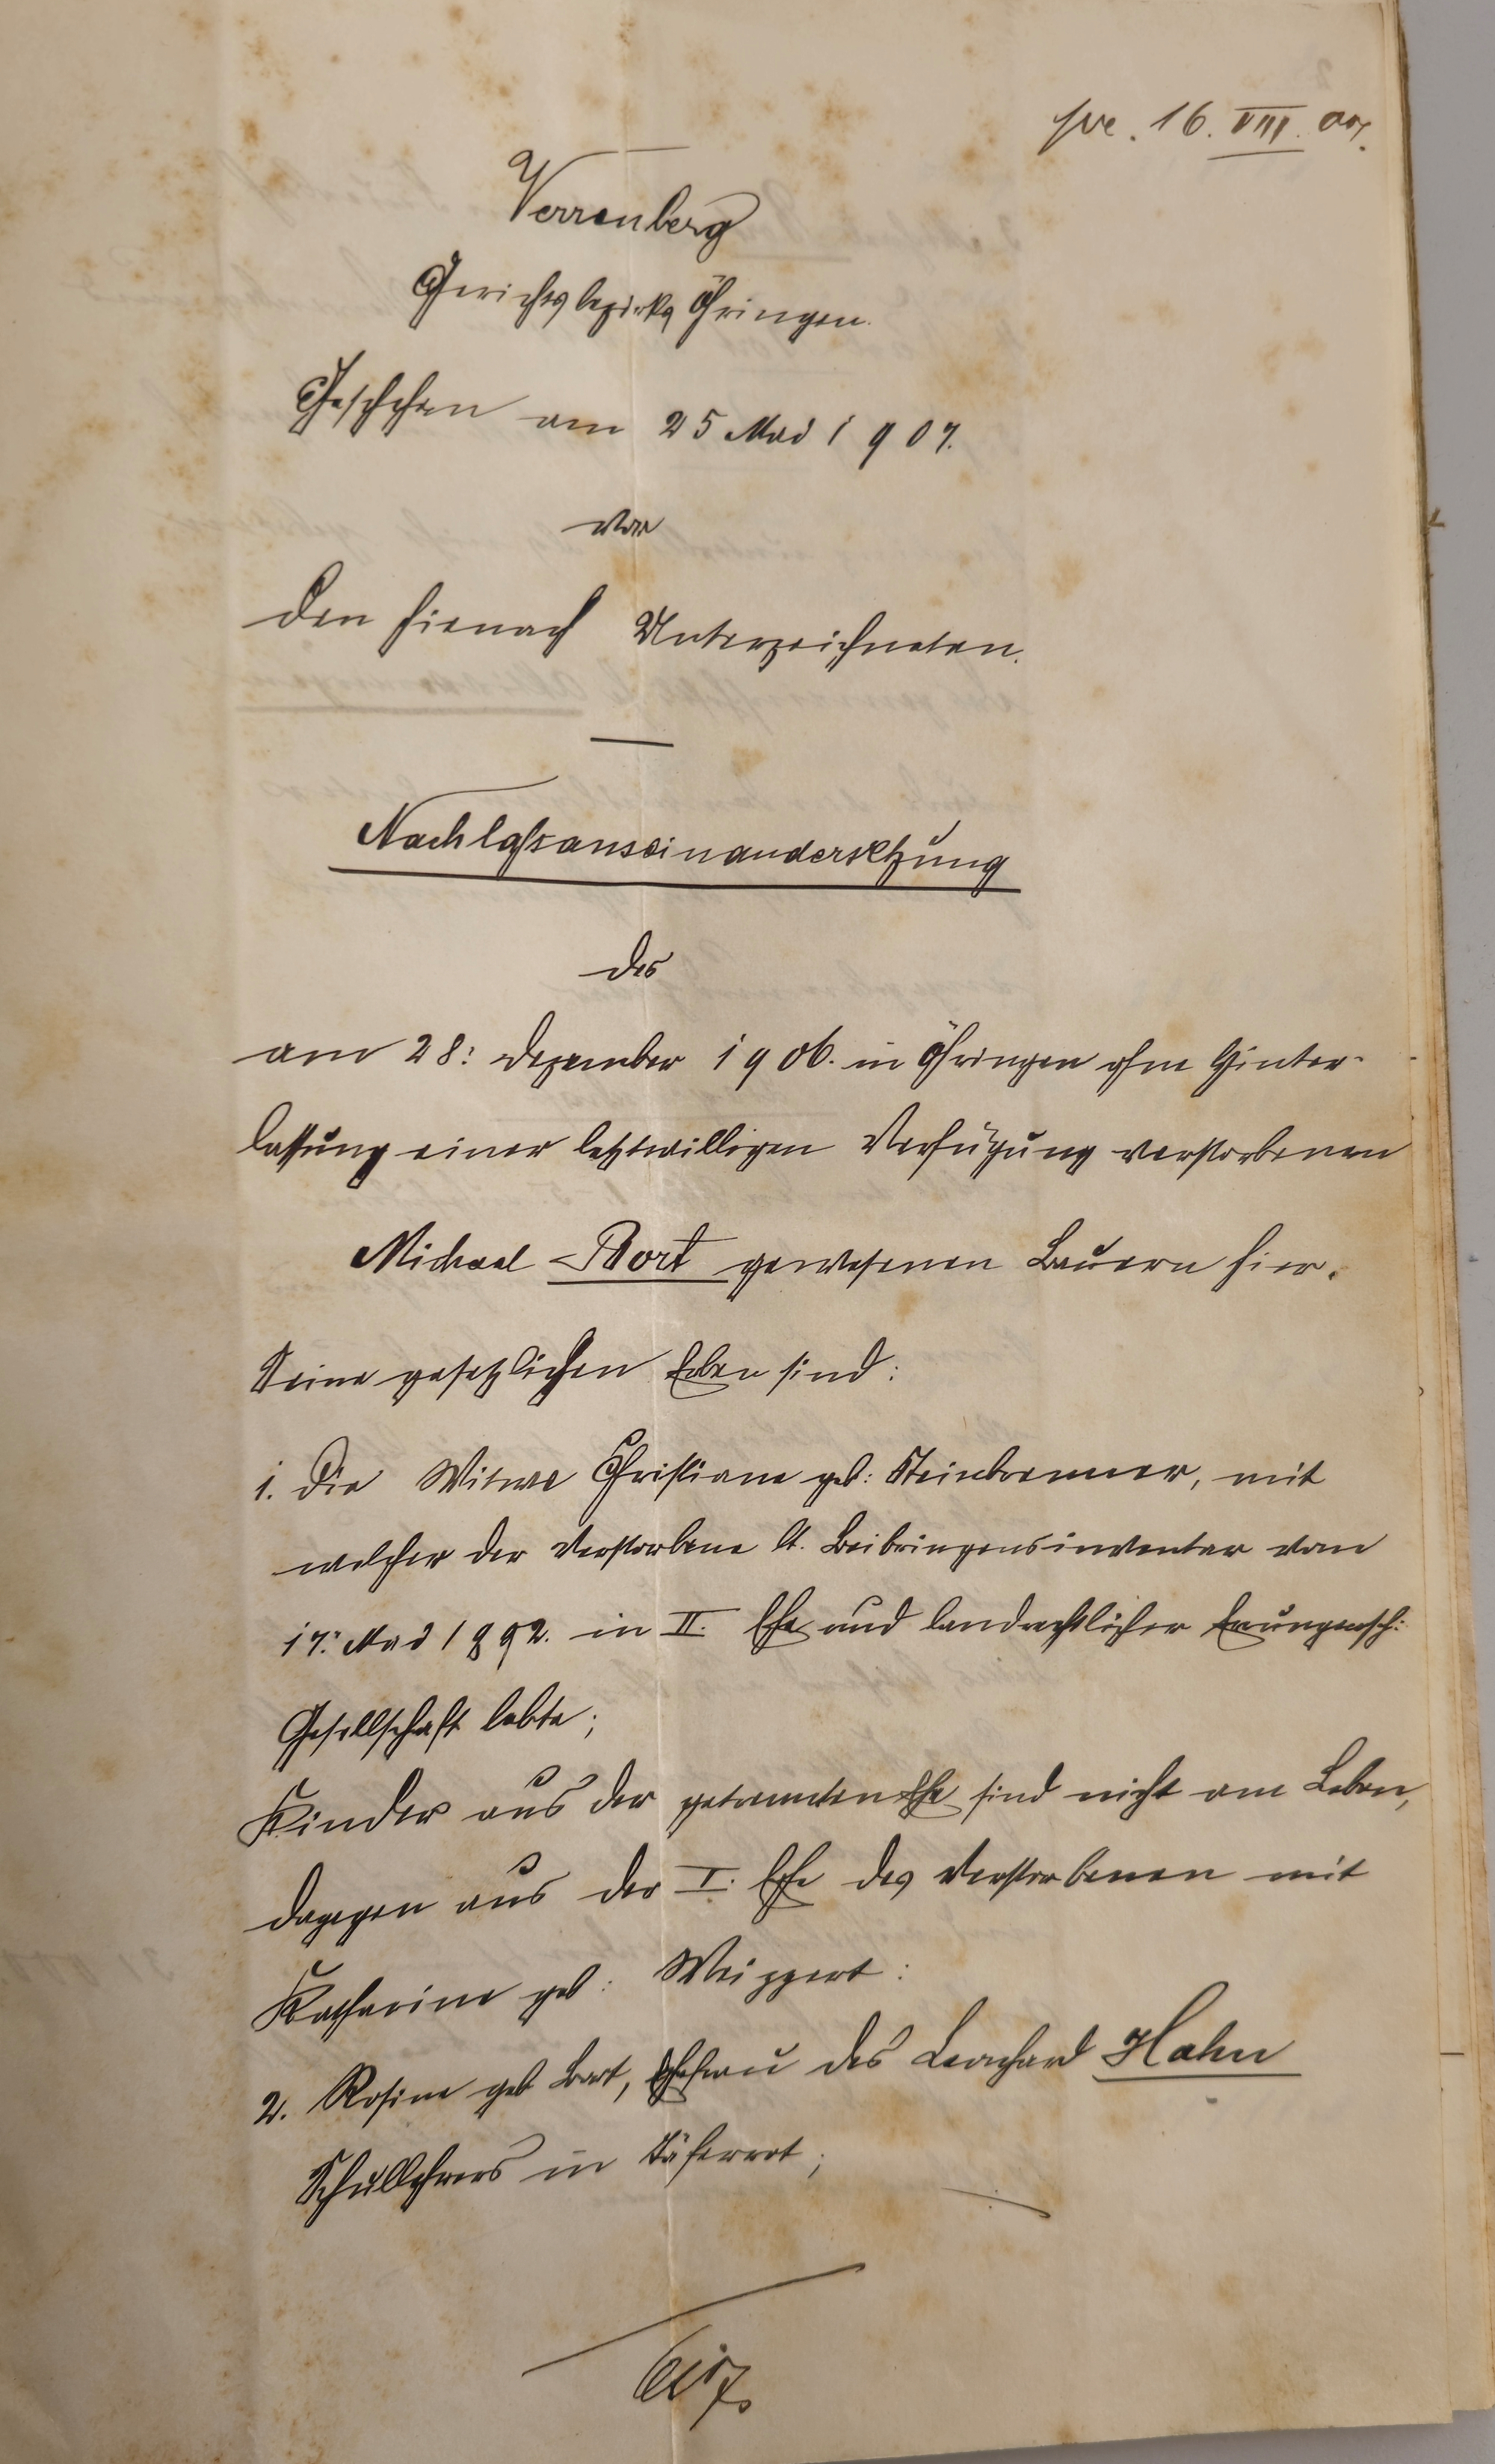 16. VIII. 07.
Verrenberg
Gerichtsbezirks Öhringen.
Geschehen am 25 Mai 1907.
vor
den hienach Unterzeichneten.
Nachlassauseinandersetzung
des
am 28: Dezember 1906. in Öhringen ohne Hinter-
lassung einer letztwilligen Verfügung verstorbenen
Michael Bort gewesenen Bauern hier.
Seine gesetzlichen Erben sind:
1. Die Witwe Christiane geb: Steinbrenner, mit
welcher der Verstorbene lt. Beibringensinventar vom
17: Mai 1892. in II. Ehe und landrechtlicher Errungensch:
Gesellschaft lebte;
Kinder aus der getrennten Ehe sind nicht am Leben,
dagegen aus der I. Ehe des Verstorbenen mit
Katharine geb: Weippert:
2. Rosine geb Bort, Ehefrau des Leonhard Hahn
Schullehrers in Täferrot;